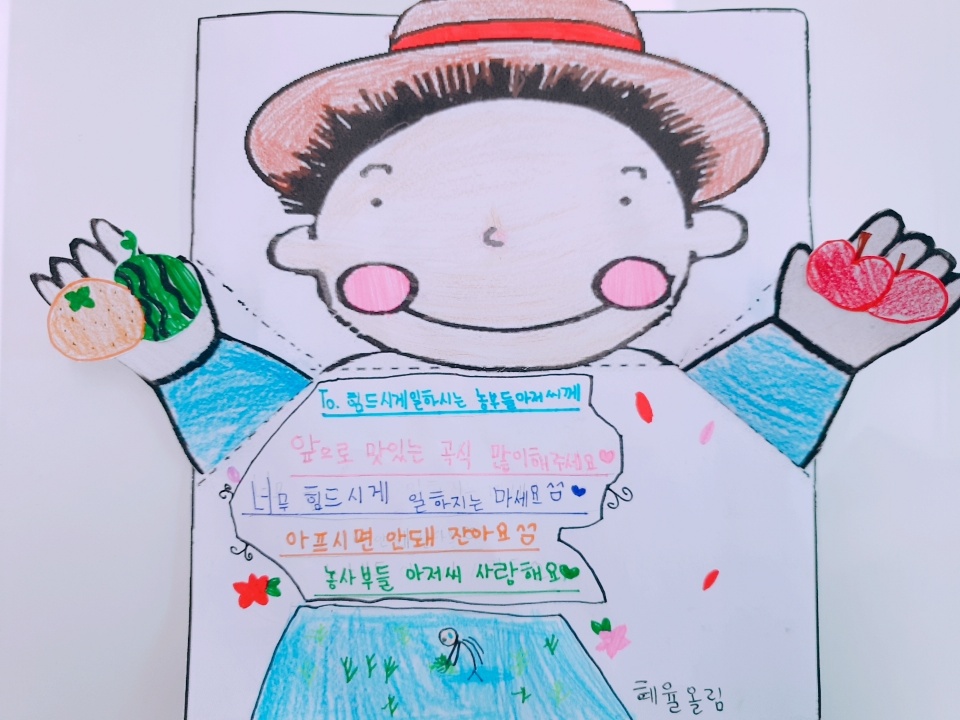 To. 힘드시게일하시는 농부들아저씨께
앞으로 맛있는 곡식 많이해주세요
너무 힘드시게 일하지는 마세요꼭
아프시면 안돼 잔아요
농사부들 아저씨 사랑해요
혜율올림